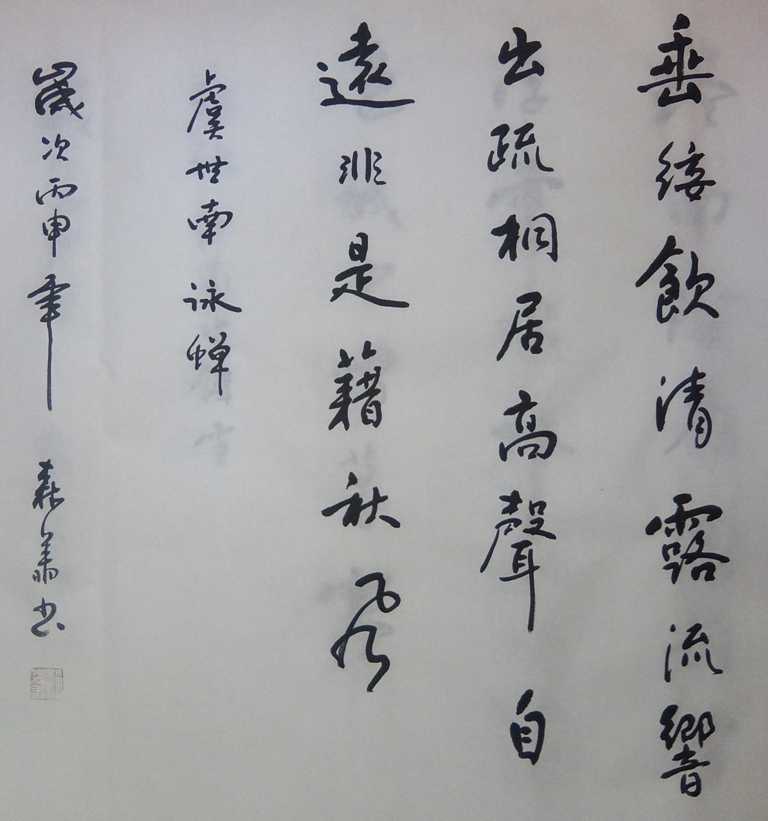 垂緌飲清露流響
出疏桐居高聲自
遠非是藉秋風
虞世南咏蝉
歲次丙申年 森 书